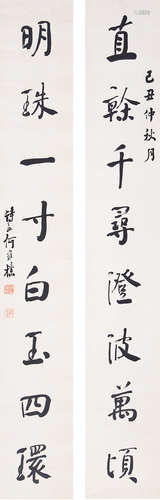 己丑仲秋月
直榦千尋澄波萬頃
明珠一寸白玉四環